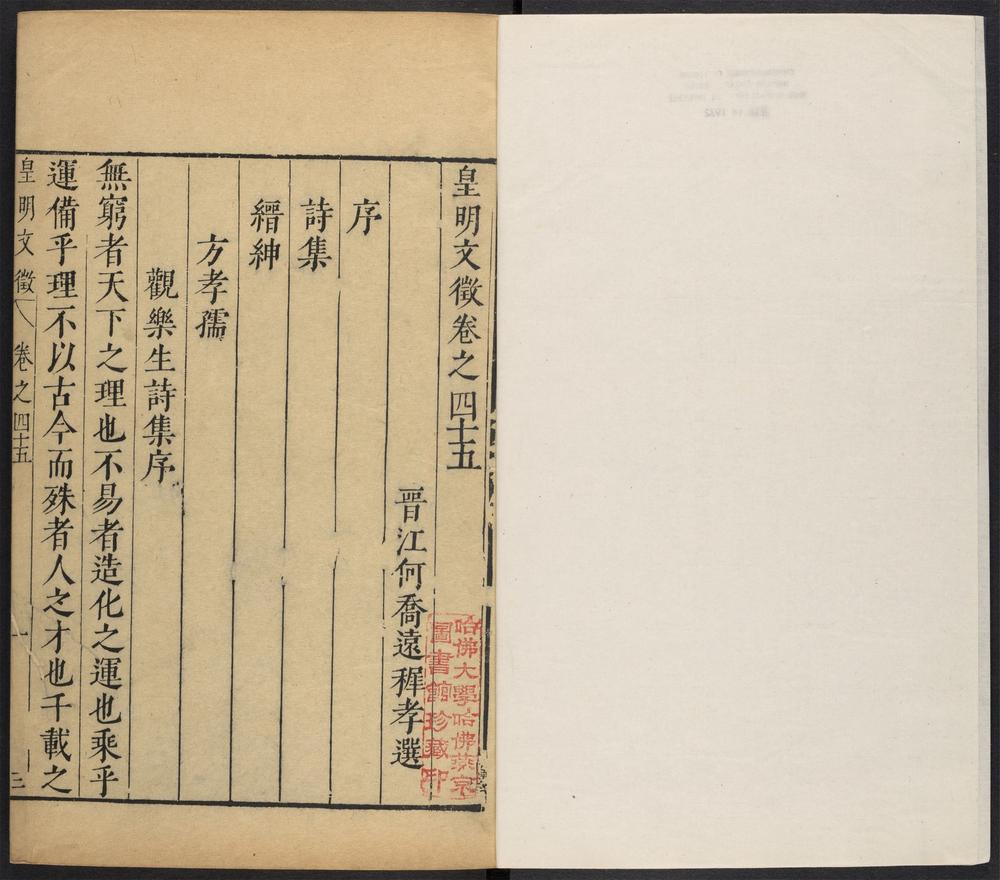 皇明文徵卷之四十五
晉江何喬遠穉孝選
序
詩集
縉紳
方孝孺
觀樂生詩集序
無窮者天下之理也不易者造化之運也乘乎
運備乎理不以古今而殊者人之才也千載之
皇明文徵 卷之四十五 一 三
哈佛大學哈佛燕京
圖書館珍藏印